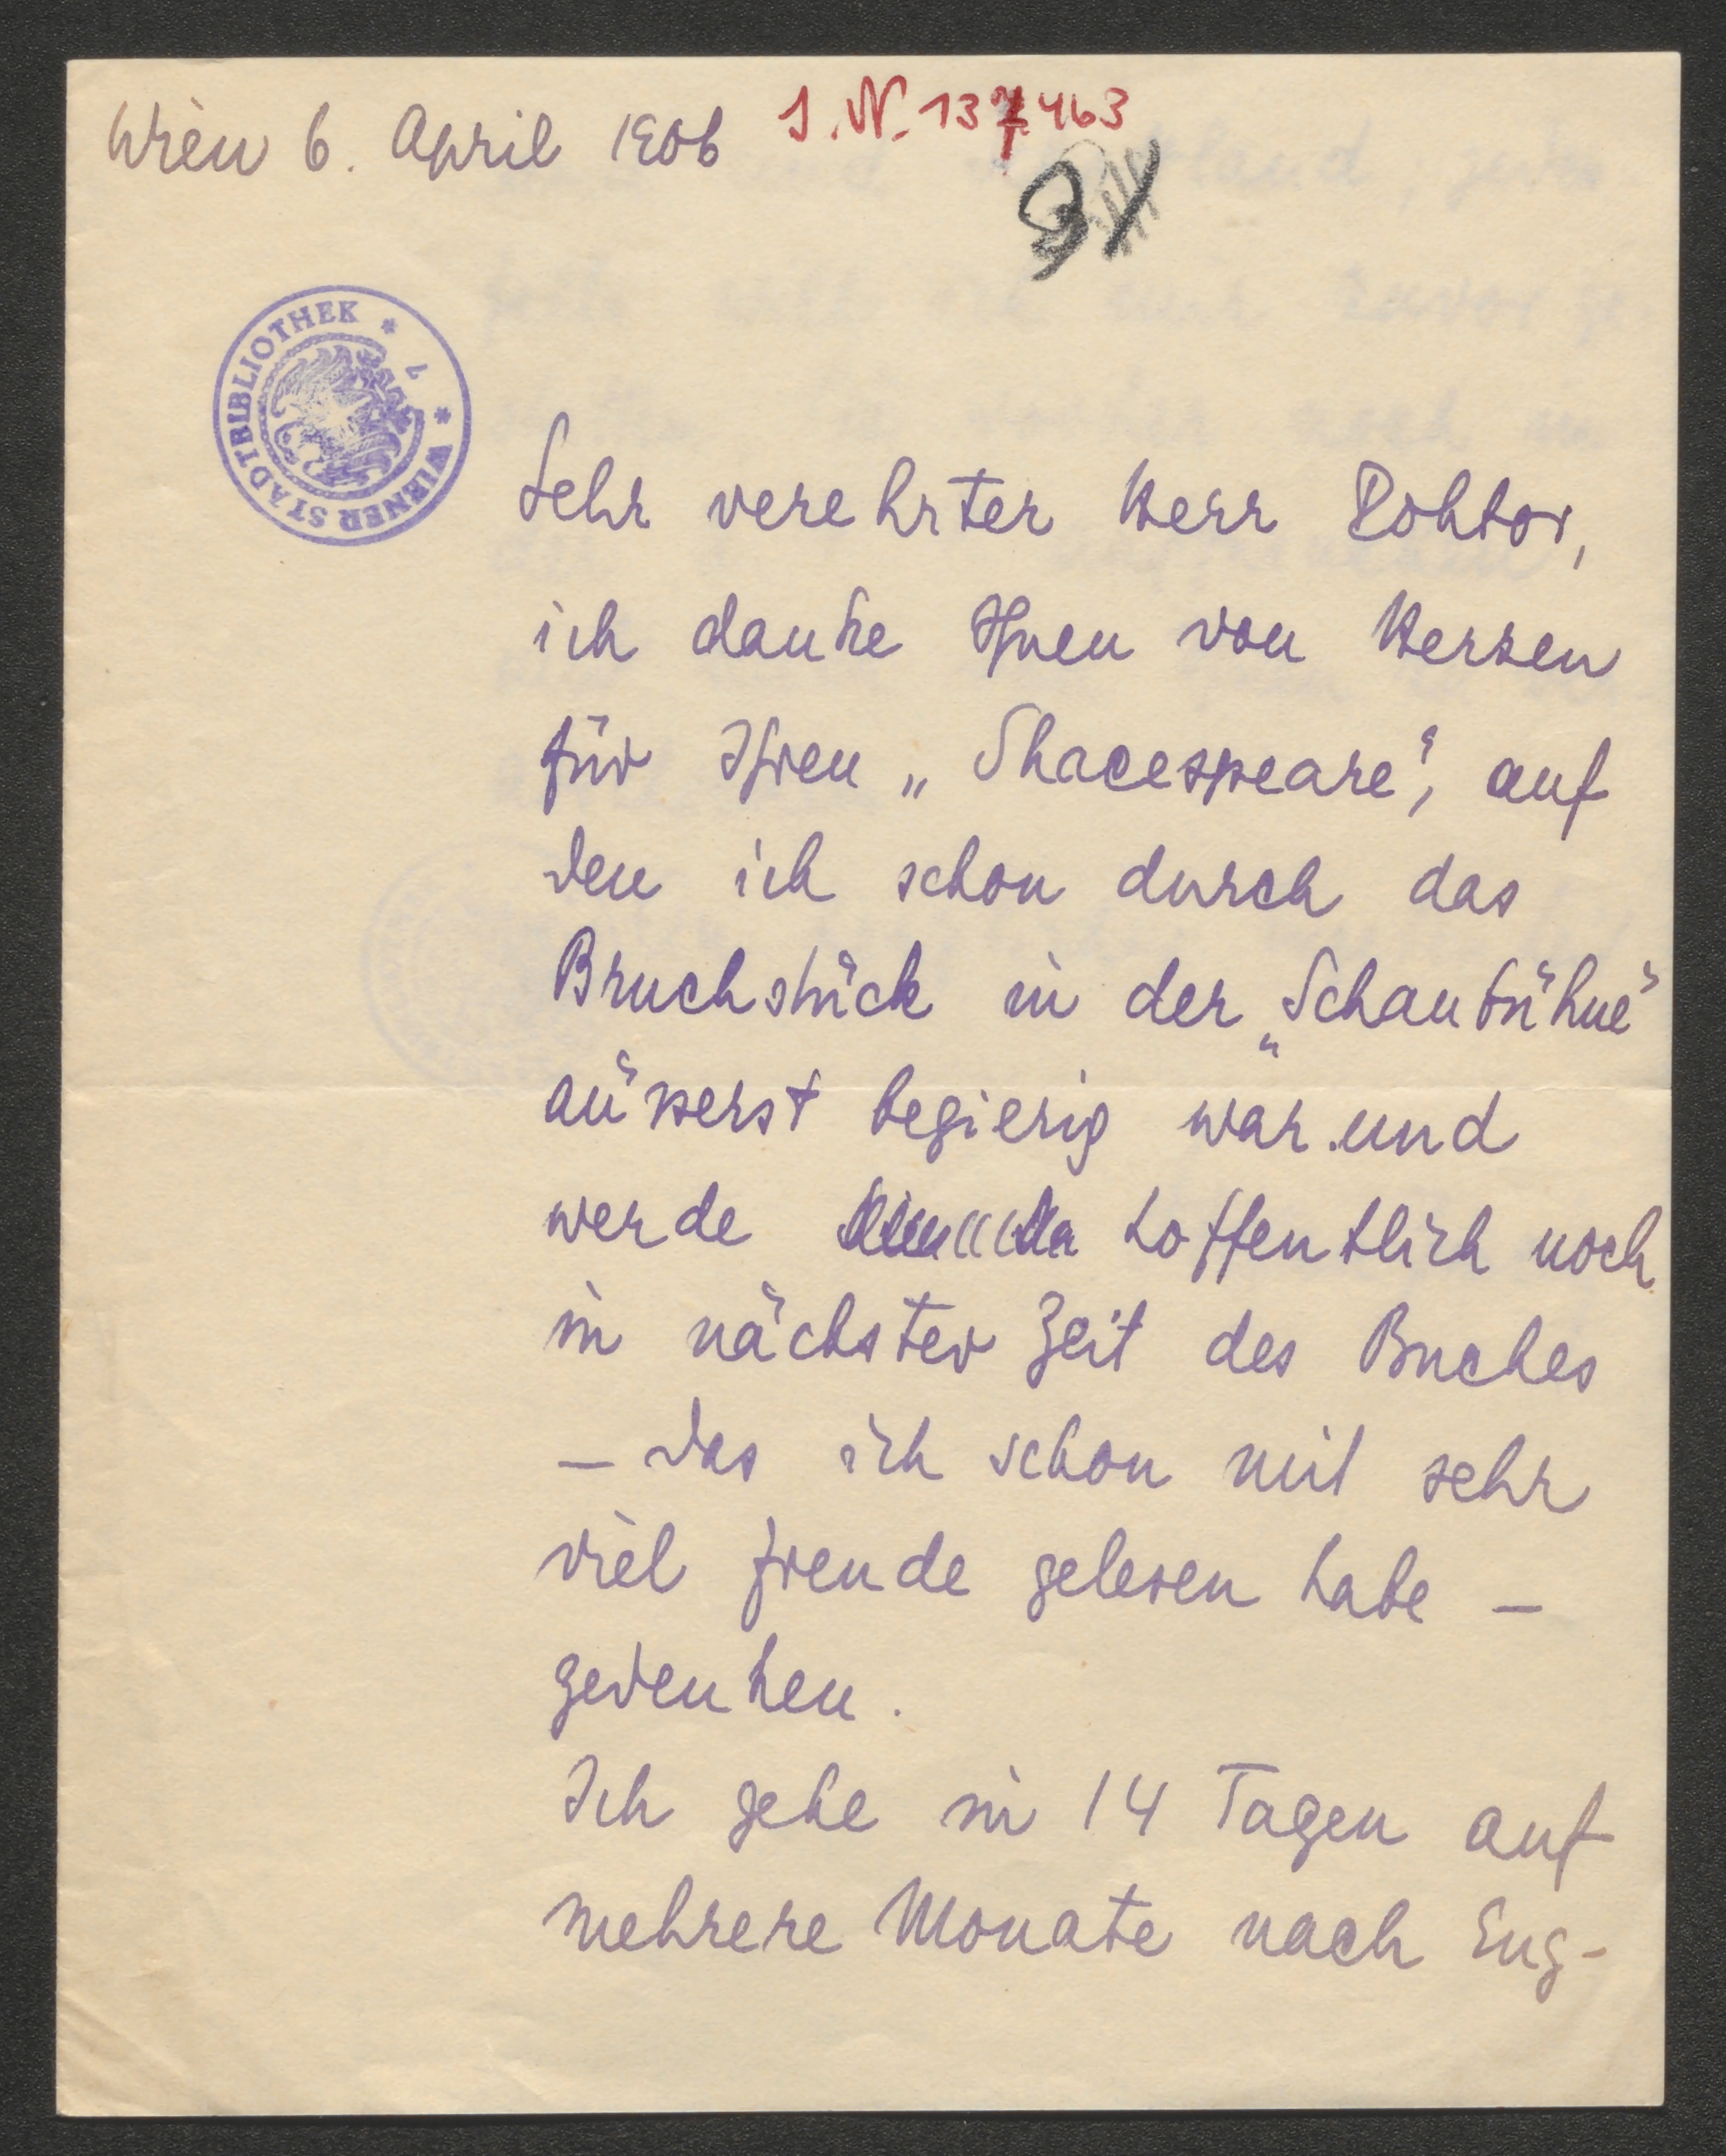 Wien 6. April 1906
I.N. 137463
WIENER STADTBIBLIOTHEK
Sehr verehrter Herr Doktor,
ich danke Ihnen von Herzen
für Ihren „Shacespeare“, auf
den ich schon durch das
Bruchstück in der „Schaubühne“
äußerst begierig war und
werde hoffentlich noch
in nächster Zeit des Buches
– das ich schon mit sehr
viel Freude gelesen habe –
gedenken.
Ich gehe in 14 Tagen auf
mehrere Monate nach Eng-